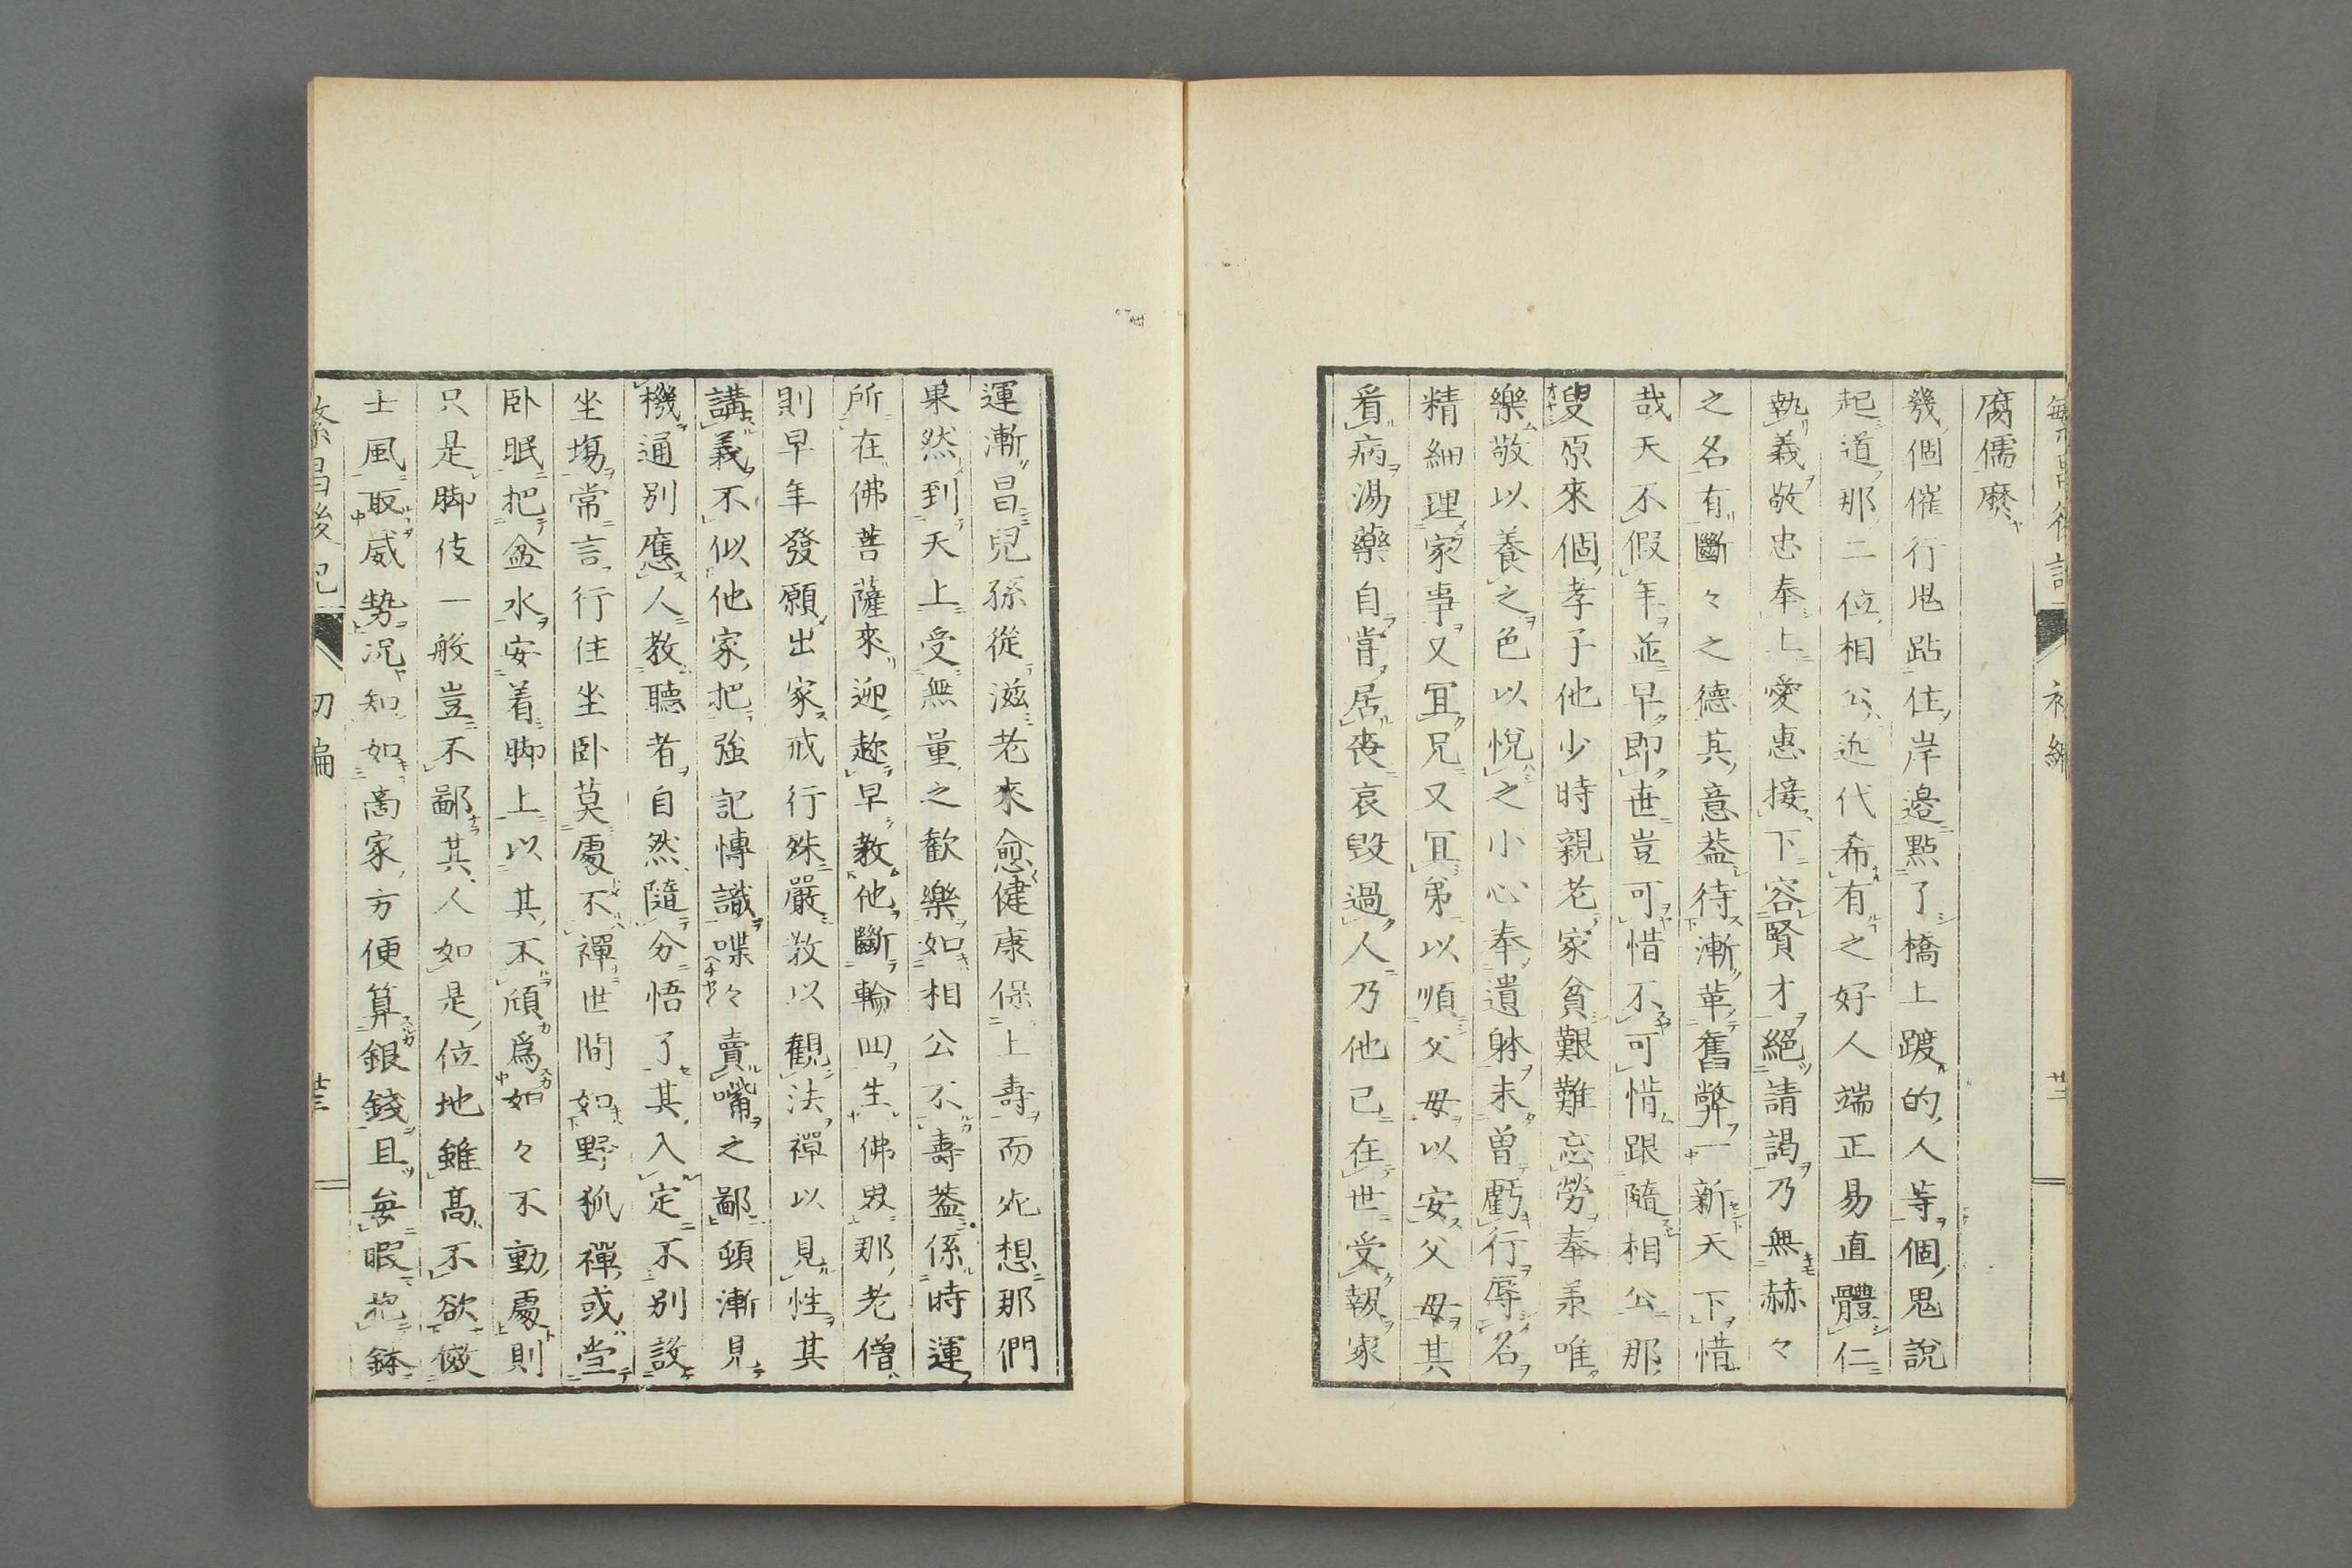 腐儒麽
幾個催行鬼跕住岸邊點了橋上踱的人等個鬼說
起道那二位相公近代希有之好人端正易直體仁
執義敬忠奉上愛惠接下容賢才絕請謁乃無赫々
之名有斷々之德其意蓋待漸革舊弊一新天下惜
哉天不假年並早即世豈可惜不可惜跟隨相公那
叟原來個孝子他少時親老家貧艱難忘勞奉羕唯
樂敬以養之色以悅之小心奉遺躰未曾虧行辱名
精細理家事又冝兄又冝弟以順父母以安父母其
看病湯藥自嘗居喪哀毀過人乃他已在世受報家
運漸昌兒孫從滋老來愈健康保上壽而死想那們
果然到天上受無量之歡樂如相公不壽蓋係時運
所在佛菩薩來迎趂早教他斷輪四生佛界那老僧
則早年發願出家戒行殊嚴教以觀法禪以見性其
講義不似他家把強記博識喋々賣嘴之鄙頓漸見
機通別應人教聽者自然隨分悟了其入定不別設
坐塲常言行住坐卧莫處不禪世間如野狐禪或堂
卧眠把盆水安着脚上以其不頎爲如々不動處則
只是脚伎一般豈不鄙其人如是位地雖高不欲傚
士風取威勢况知如高家方便算銀錢且毎暇抱鉢
繁昌後記 初編 廿三